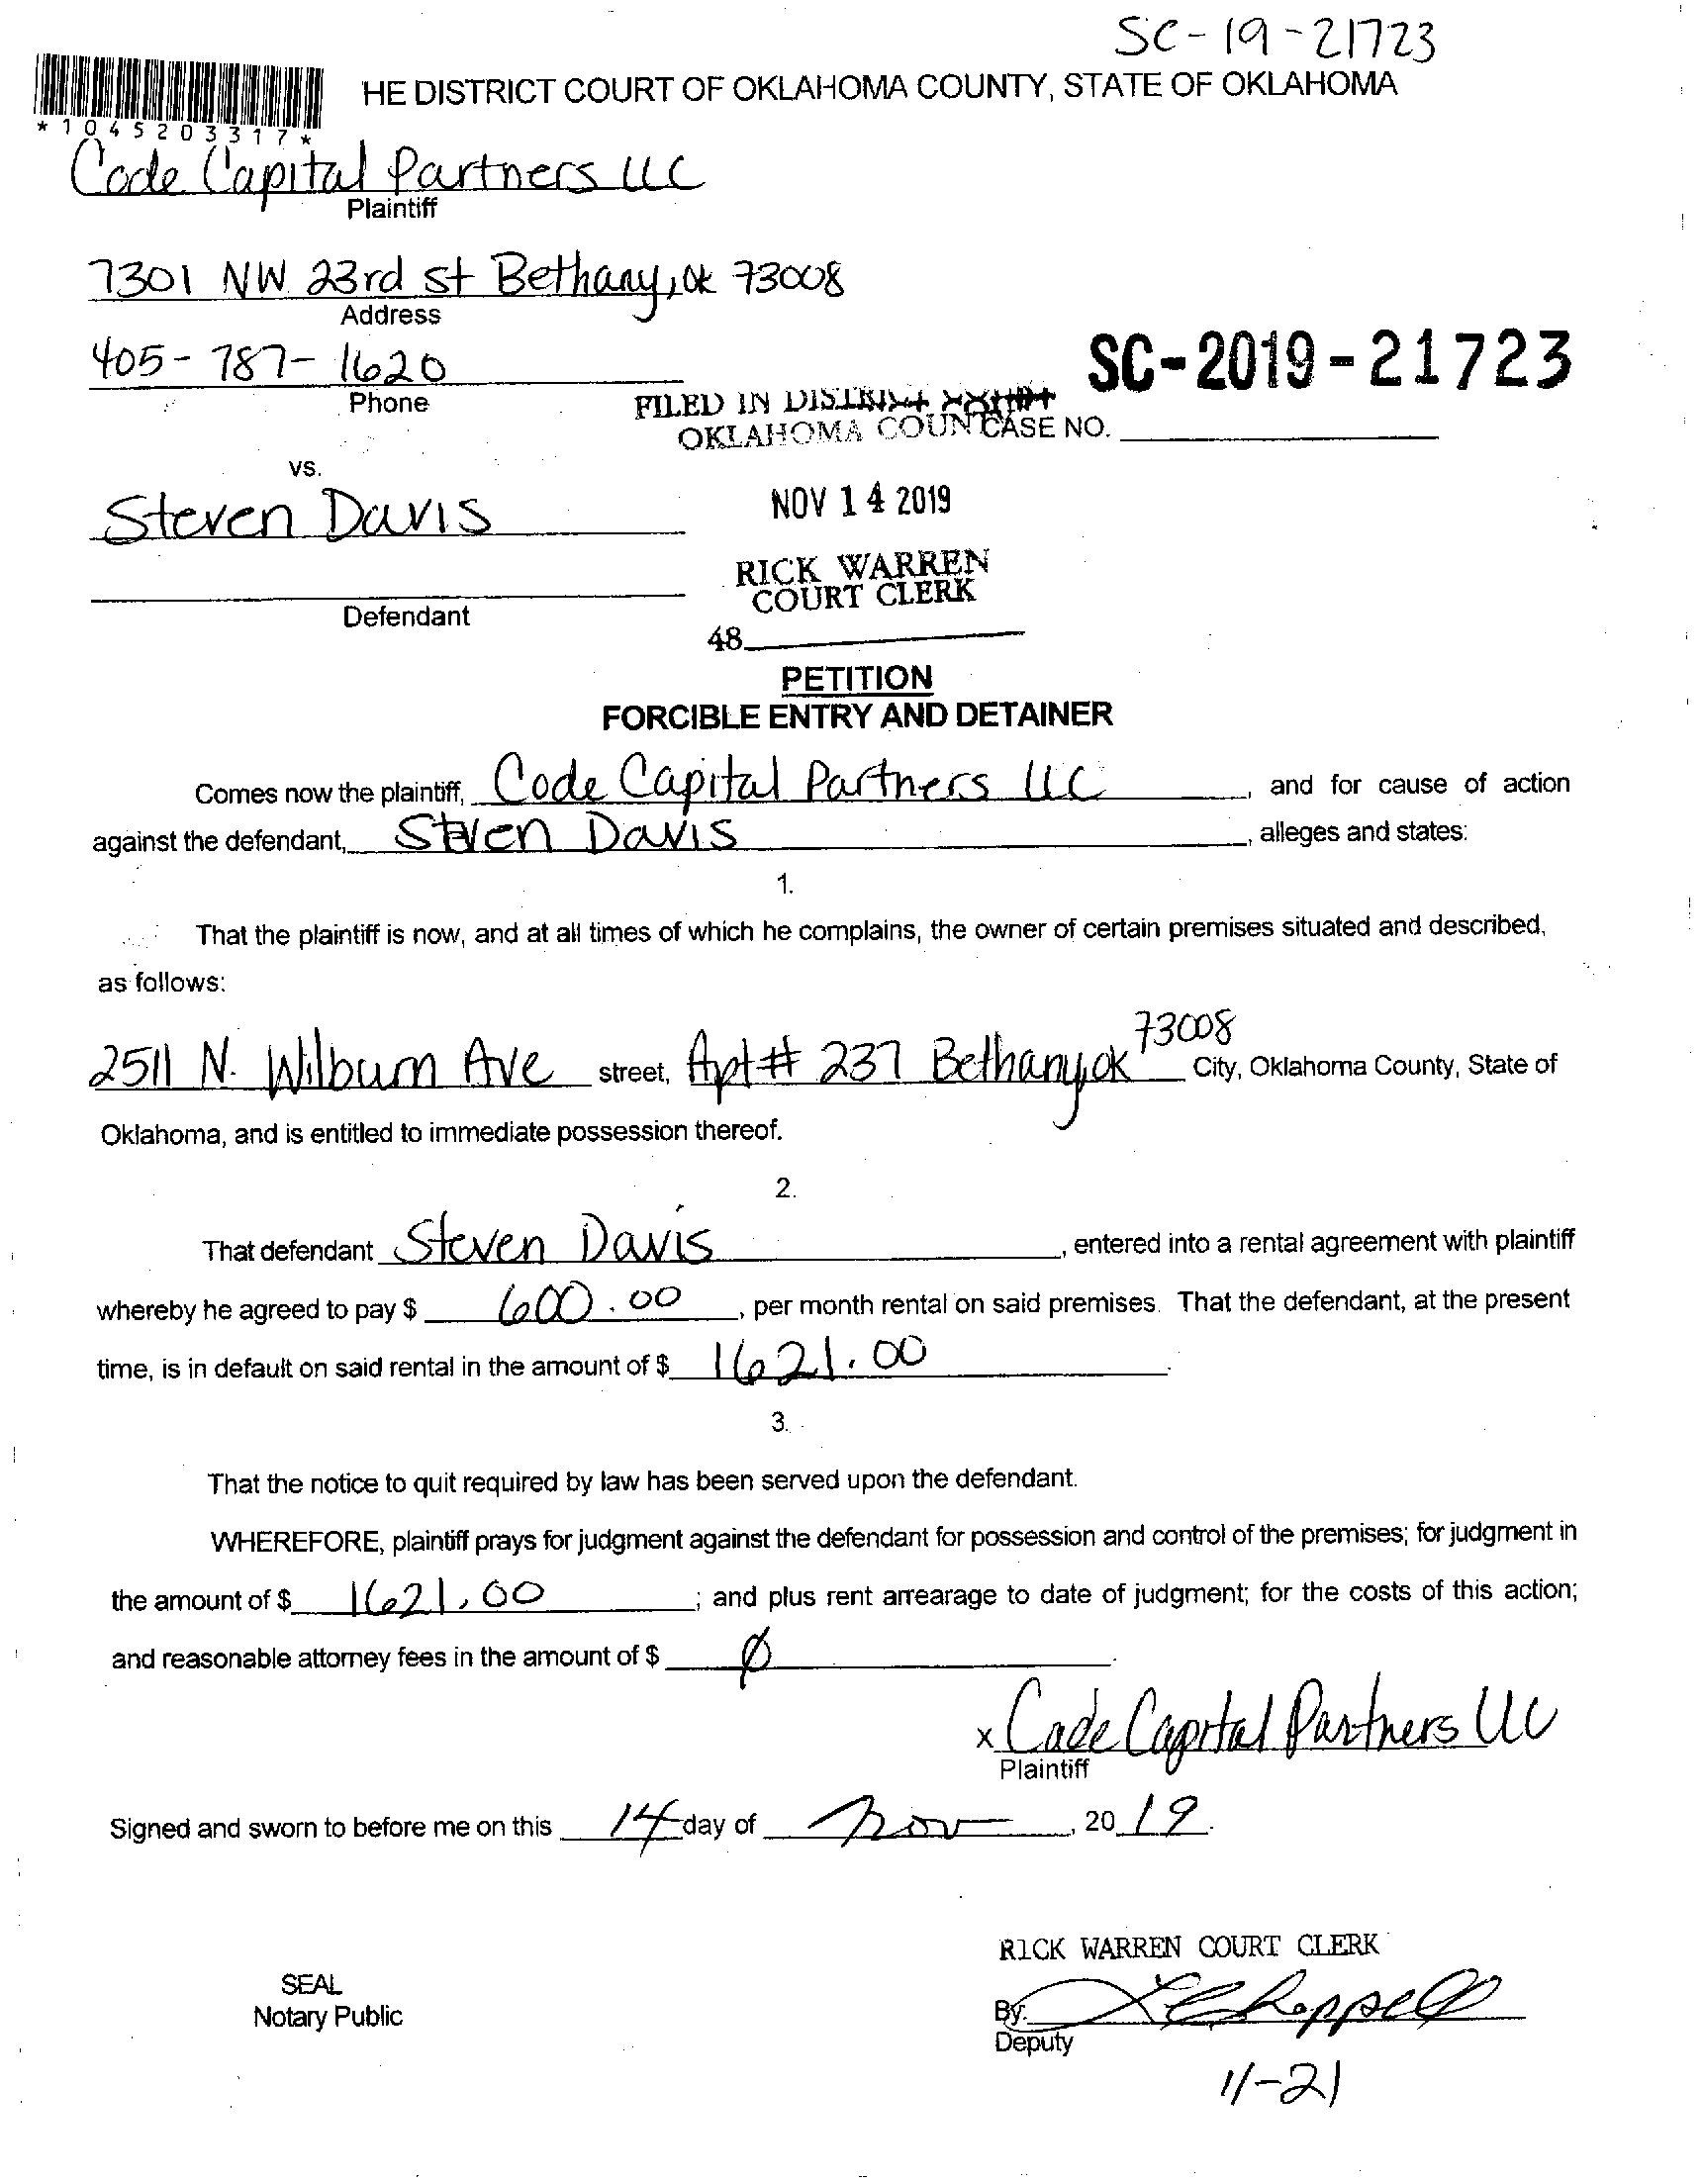 SC-19-21723
HE DISTRICT COURT OF OKLAHOMA COUNTY, STATE OF OKLAHOMA
*1045203317*
Code Capital Partners LLC
Plaintiff
7301 NW 23rd st Bethany, ok 73008
Address
405-787-1620
Phone
SC-2019-21723
FILED IN DISTRICT
OKLAHOMA COUN CASE NO.
vs.
Steven Davis
NOV 14 2019
RICK WARREN
COURT CLERK
Defendant
48
PETITION
FORCIBLE ENTRY AND DETAINER
Comes now the plaintiff, Code Capital Partners LLC, and for cause of action
against the defendant, Steven Davis, alleges and states:
1.
That the plaintiff is now, and at all times of which he complains, the owner of certain premises situated and described,
as follows:
73008
2511 N. Wilburn Ave street, Apt# 237 Bethany, ok City, Oklahoma County, State of
Oklahoma, and is entitled to immediate possession thereof.
2.
That defendant Steven Davis, entered into a rental agreement with plaintiff
whereby he agreed to pay $ 600.00, per month rental on said premises. That the defendant, at the present
time, is in default on said rental in the amount of $ 1621.00.
3.
That the notice to quit required by law has been served upon the defendant.
WHEREFORE, plaintiff prays for judgment against the defendant for possession and control of the premises; for judgment in
the amount of $ 1621.00; and plus rent arrearage to date of judgment; for the costs of this action;
and reasonable attorney fees in the amount of $ Ø.
x Code Capital Partners LLC
Plaintiff
Signed and sworn to before me on this 14 day of Nov, 20 19.
RICK WARREN COURT CLERK
SEAL
Notary Public
By:
Deputy
11-21